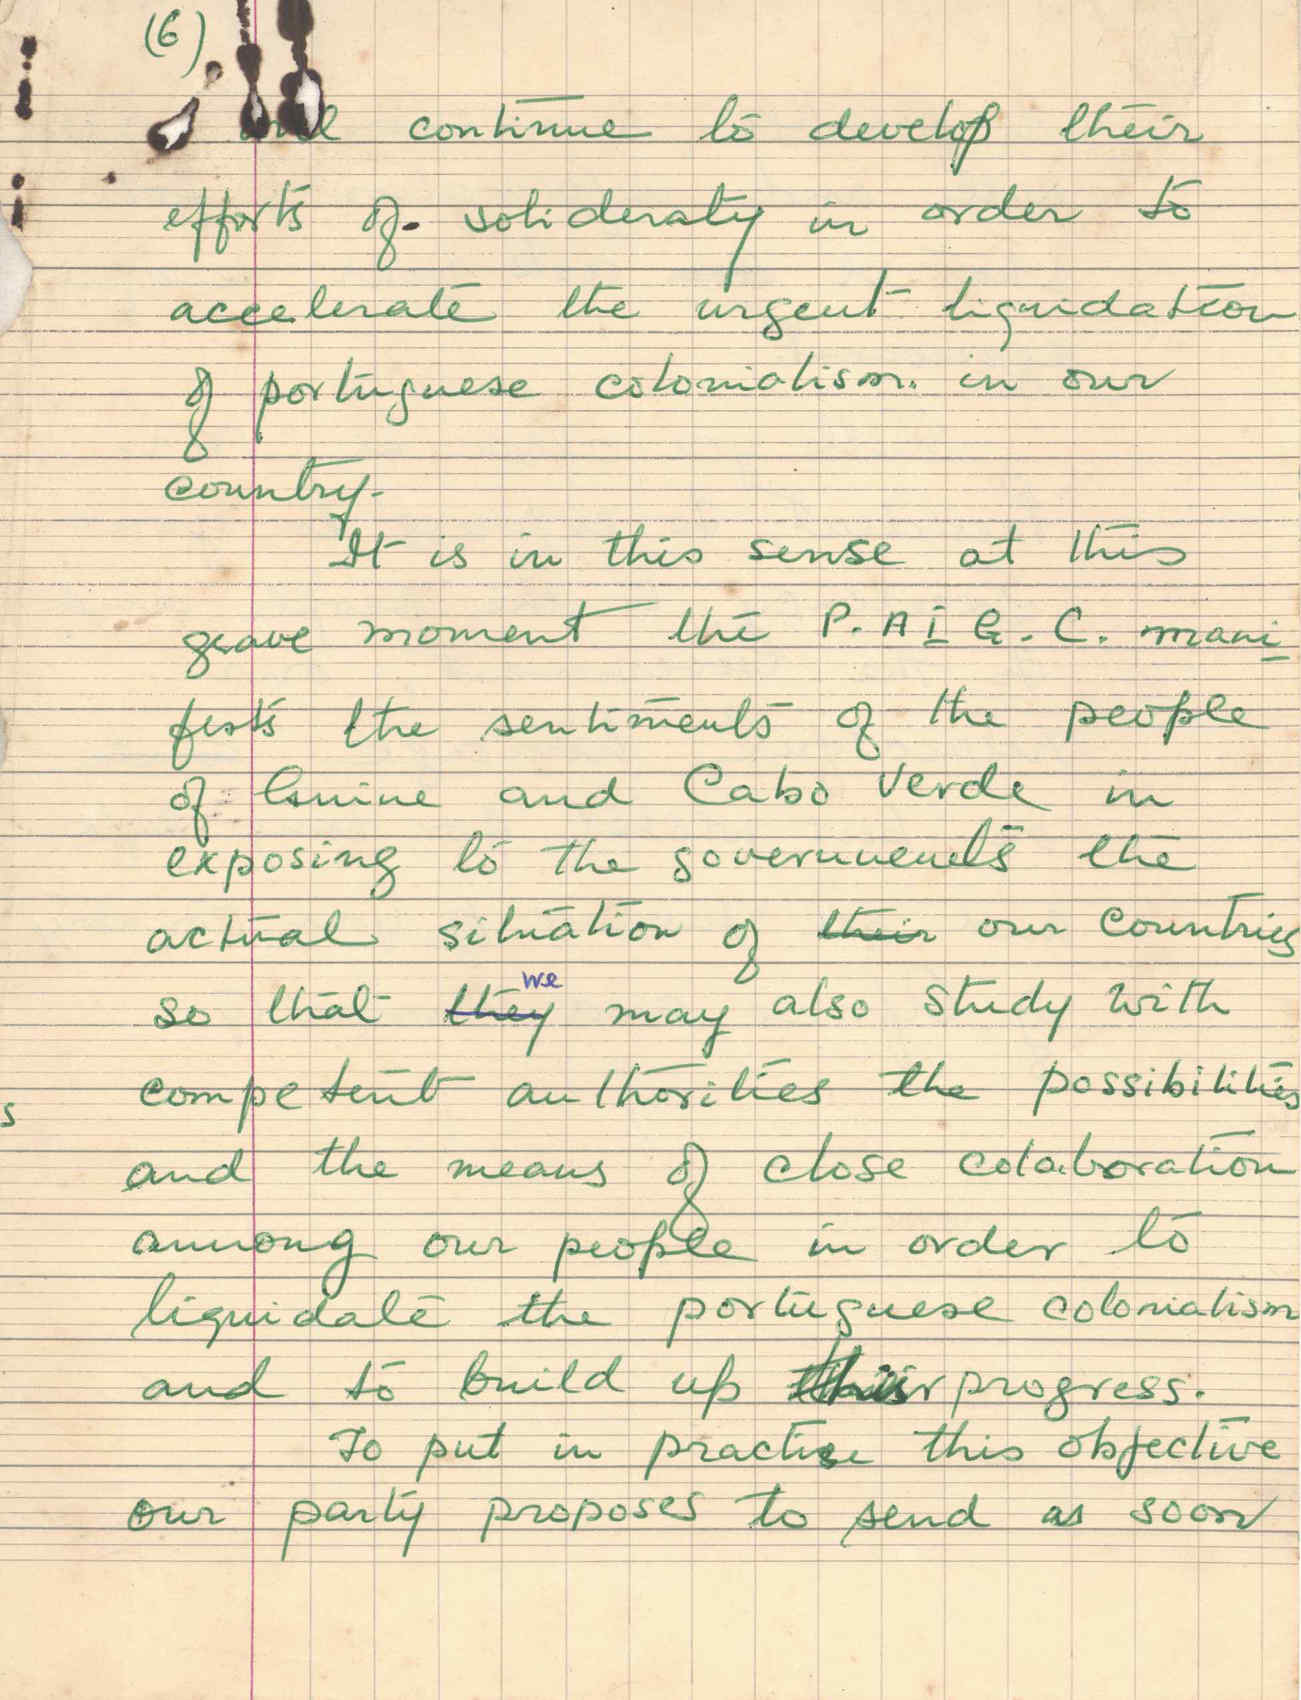 (6)
will continue to develop their
efforts of. solideraty in order to
accelerate the urgent liquidation
of portuguese colonialism. in our
country-
It is in this sense at this
grave moment the P. A I G. C. mani
fests the sentiments of the people
of Guine and Cabo Verde in
exposing to the governments the
actual situation of their our countries
we
so that they may also study with
competent authorities the possibilities
s
and the means of close colaboration
among our people in order to
liquidate the portuguese colonialism
and to build up progress.
To put in practise this objective
our party proposes to send as soon